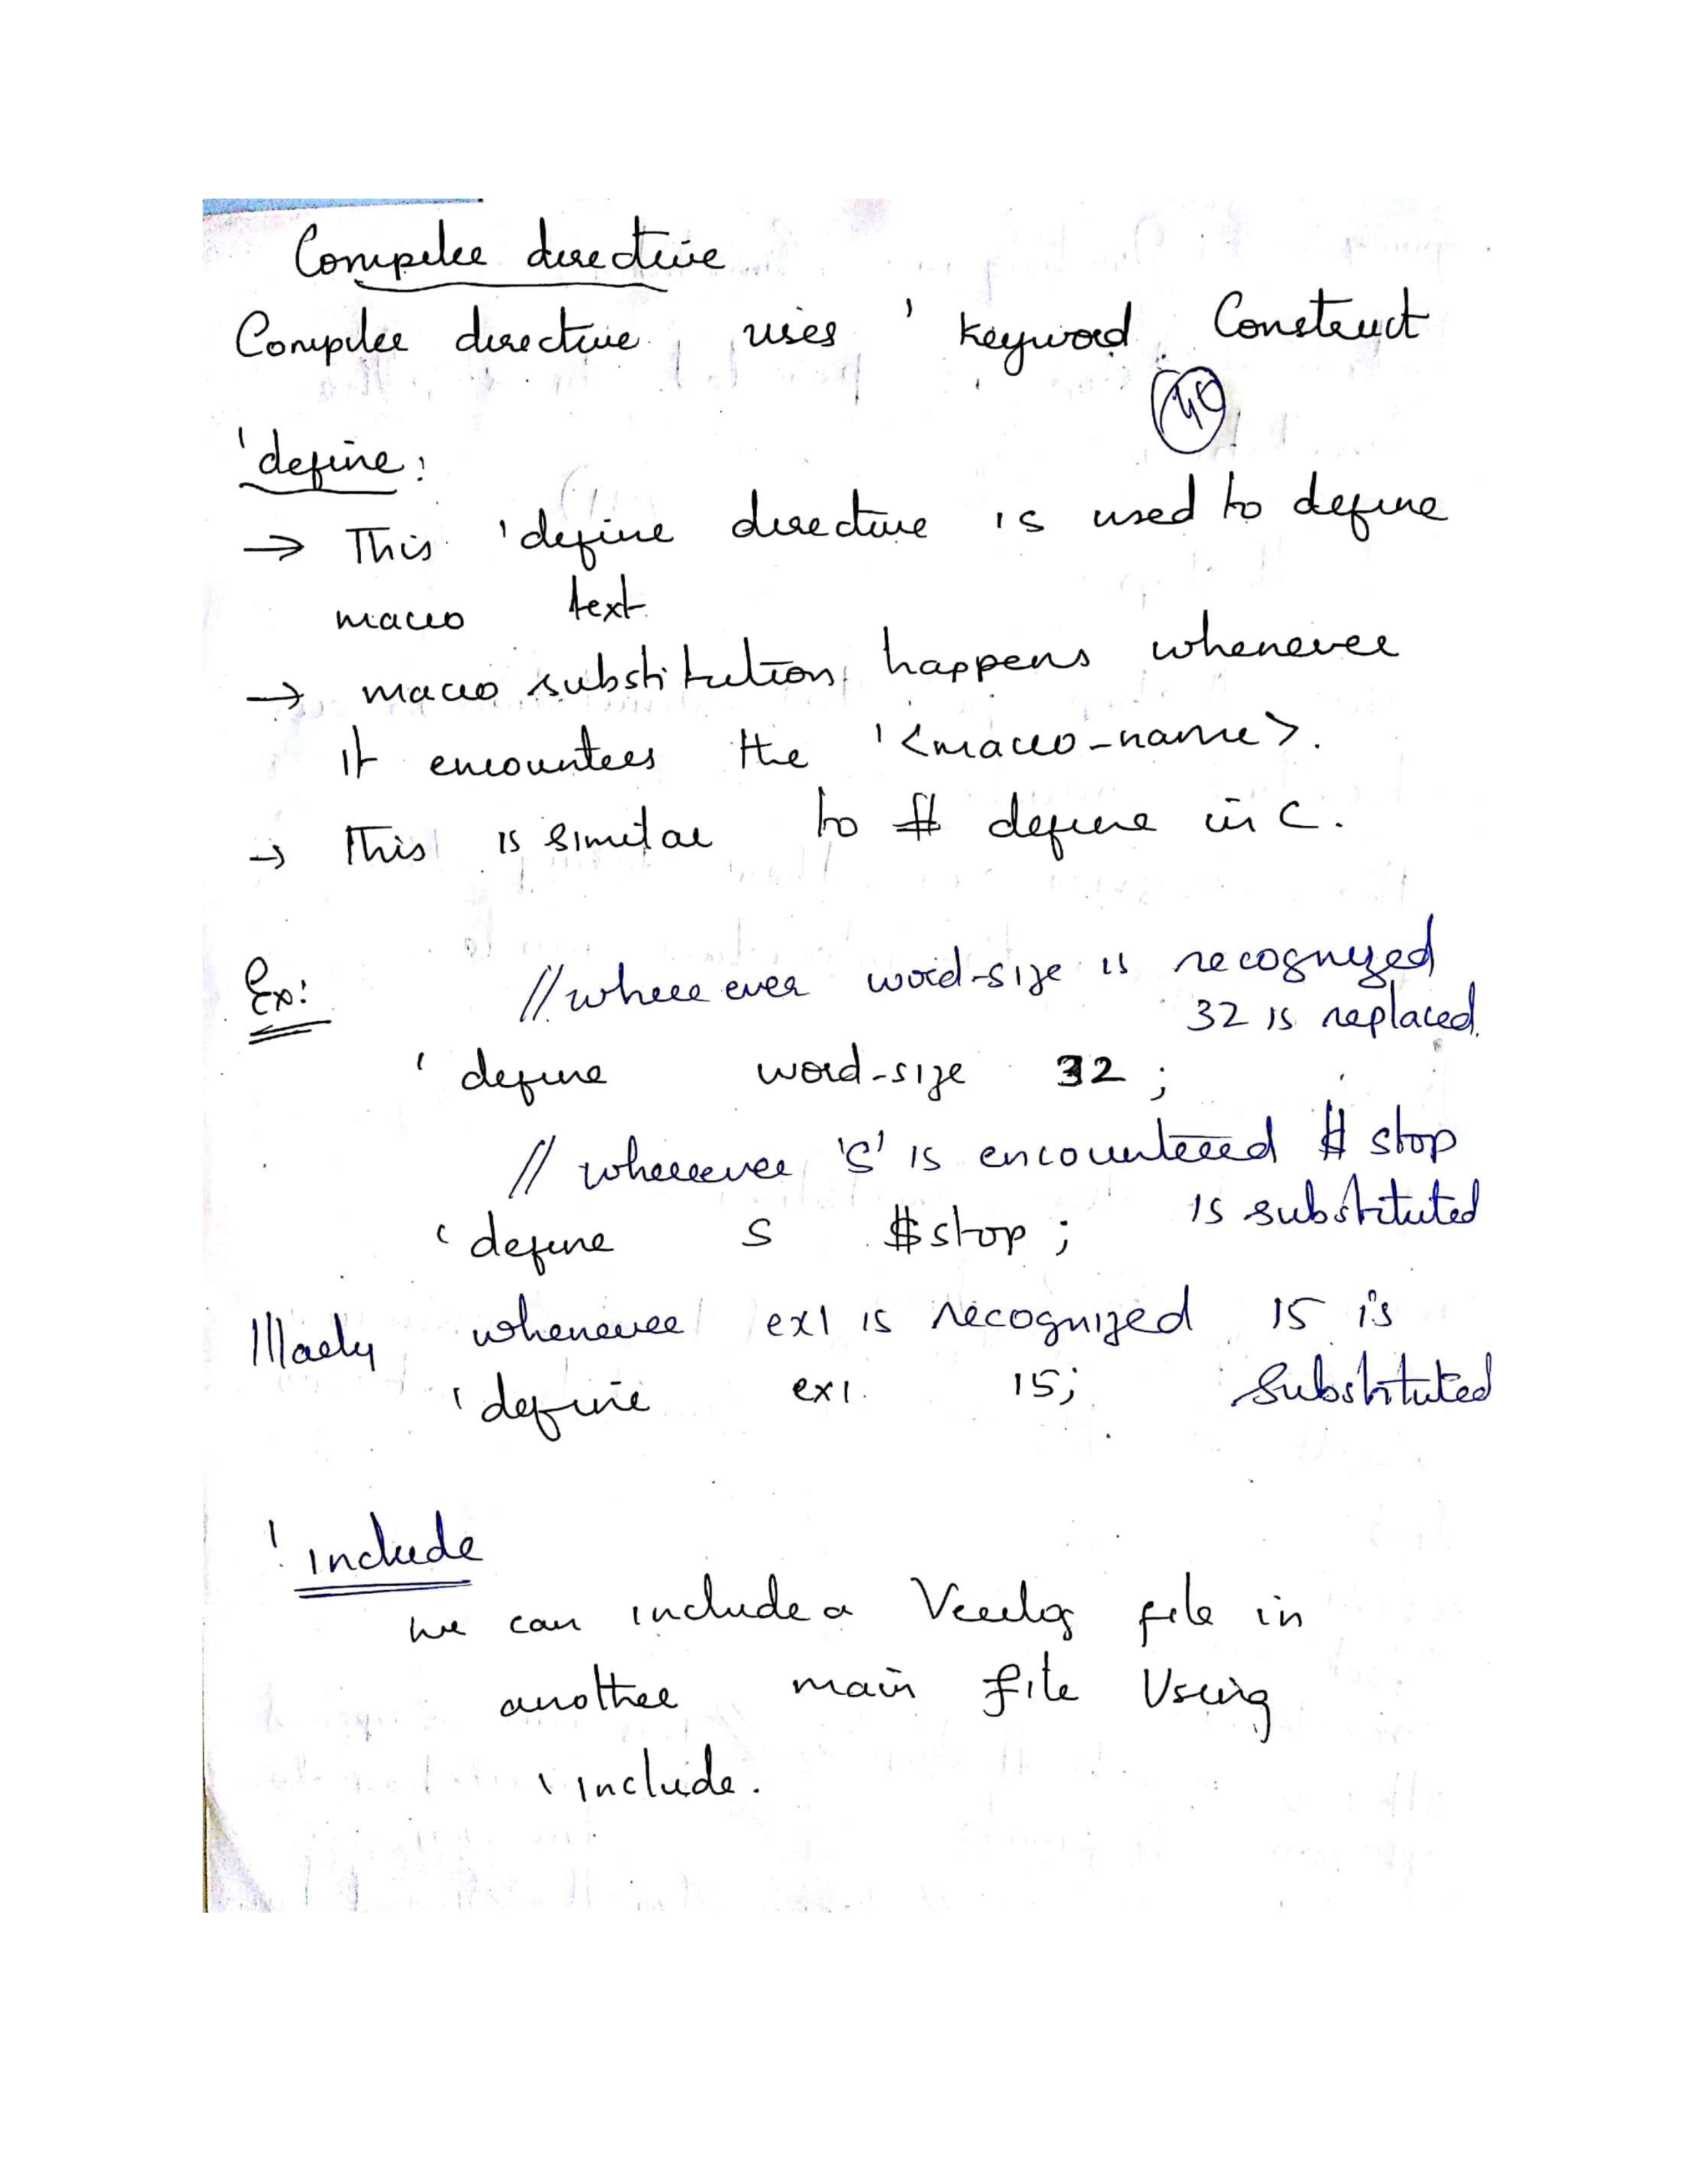 Compiler directive
Compiler directive uses ' keyword Construct
40
'define:
→ This 'define directive is used to define
macro text
→ macro substitution happens whenever
it encounters the '<macro-name>.
→ This is similar to # define in C.
Ex: // where ever word-size is recognized
32 is replaced.
' define word-size 32 ;
// wherever 'S' is encountered $ stop
is substituted
' define S $stop ;
Illarly whenever ex1 is recognized 15 is
'define ex1. 15; Substituted
' include
we can include a Verilog file in
another main file Using
' include.